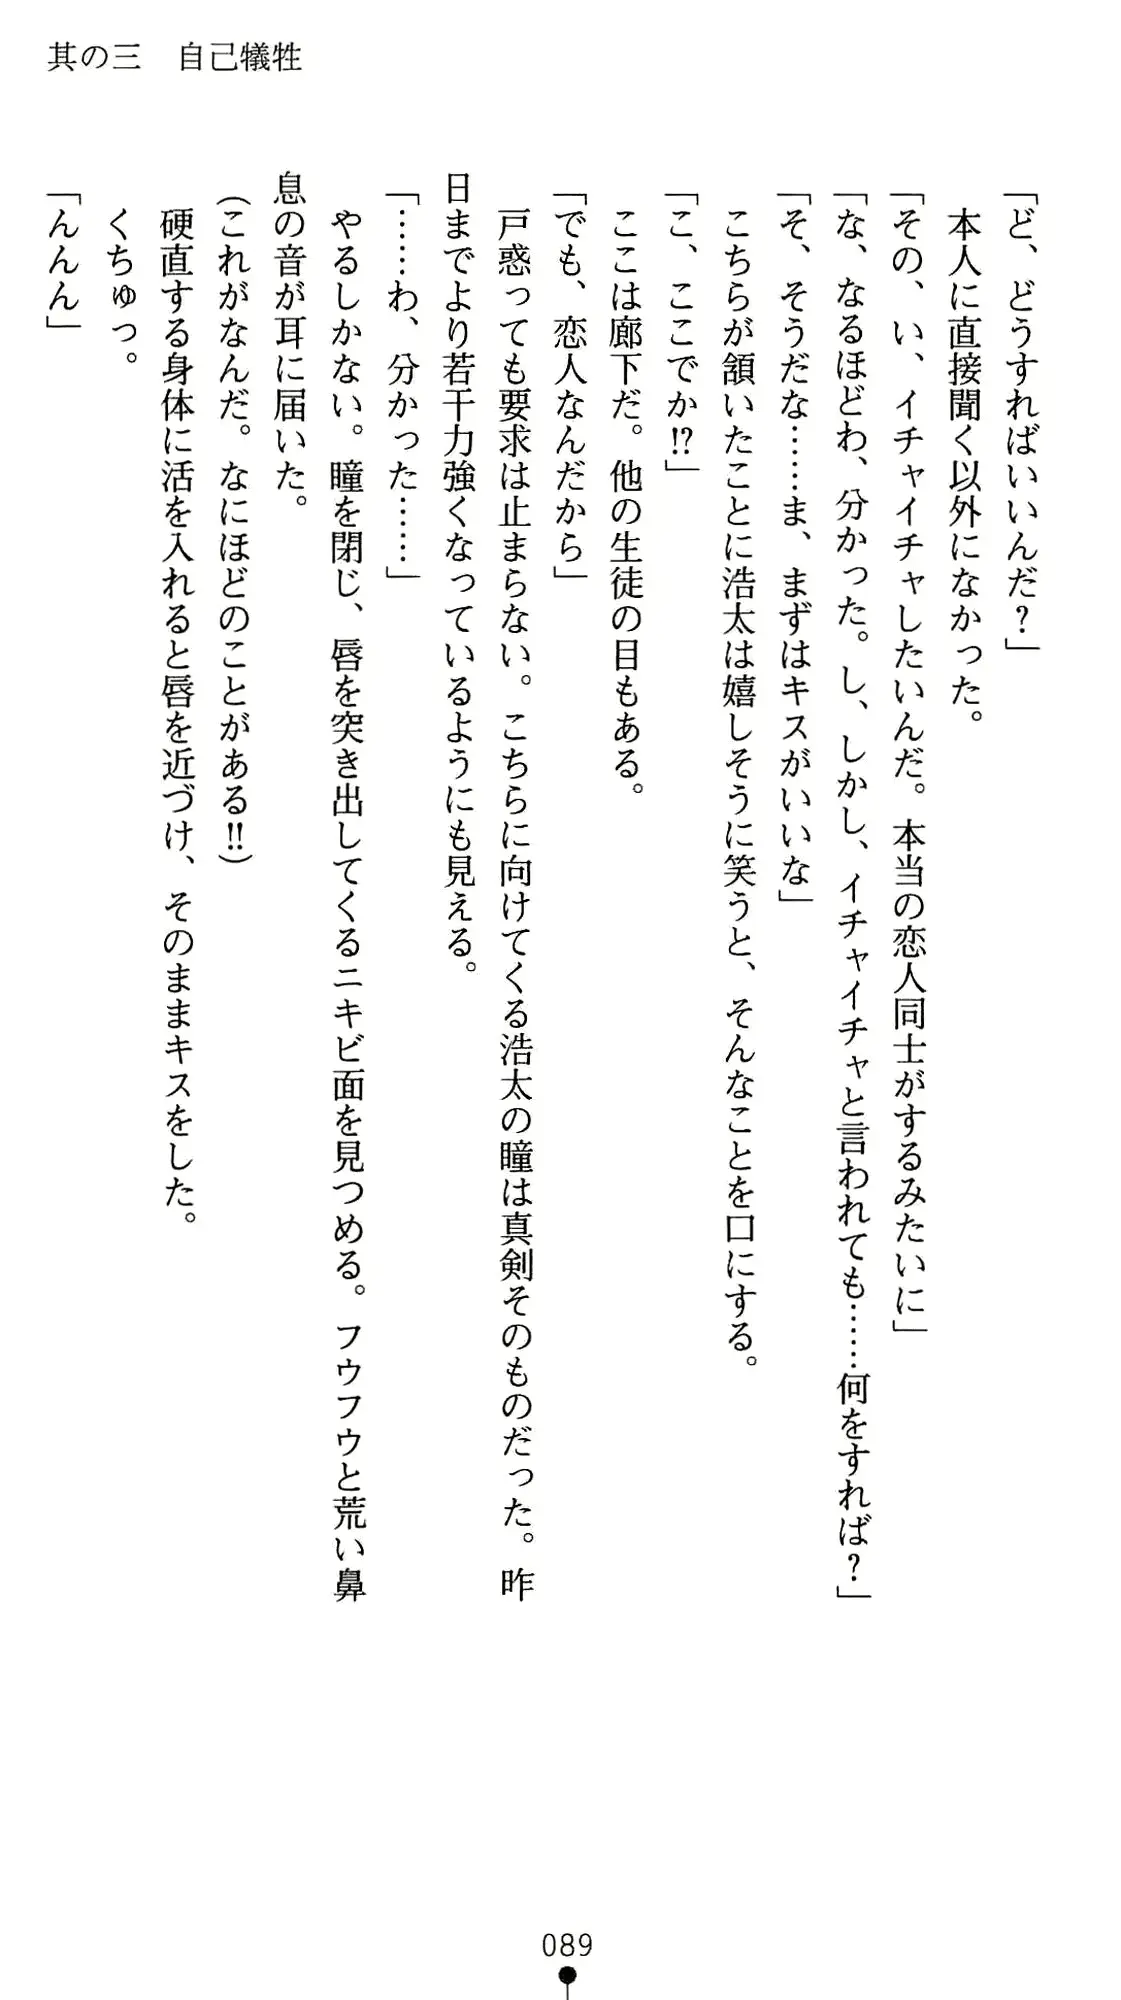 其の三　自己犠牲
「ど、どうすればいいんだ？」
本人に直接聞く以外になかった。
「その、い、イチャイチャしたいんだ。本当の恋人同士がするみたいに」
「な、なるほどわ、分かった。し、しかし、イチャイチャと言われても……何をすれば？」
「そ、そうだな……ま、まずはキスがいいな」
こちらが頷いたことに浩太は嬉しそうに笑うと、そんなことを口にする。
「こ、ここでか!?」
ここは廊下だ。他の生徒の目もある。
「でも、恋人なんだから」
戸惑っても要求は止まらない。こちらに向けてくる浩太の瞳は真剣そのものだった。昨
日までより若干力強くなっているようにも見える。
「……わ、分かった……」
やるしかない。瞳を閉じ、唇を突き出してくるニキビ面を見つめる。フウフウと荒い鼻
息の音が耳に届いた。
（これがなんだ。なにほどのことがある!!）
硬直する身体に活を入れると唇を近づけ、そのままキスをした。
くちゅっ。
「んんん」
089